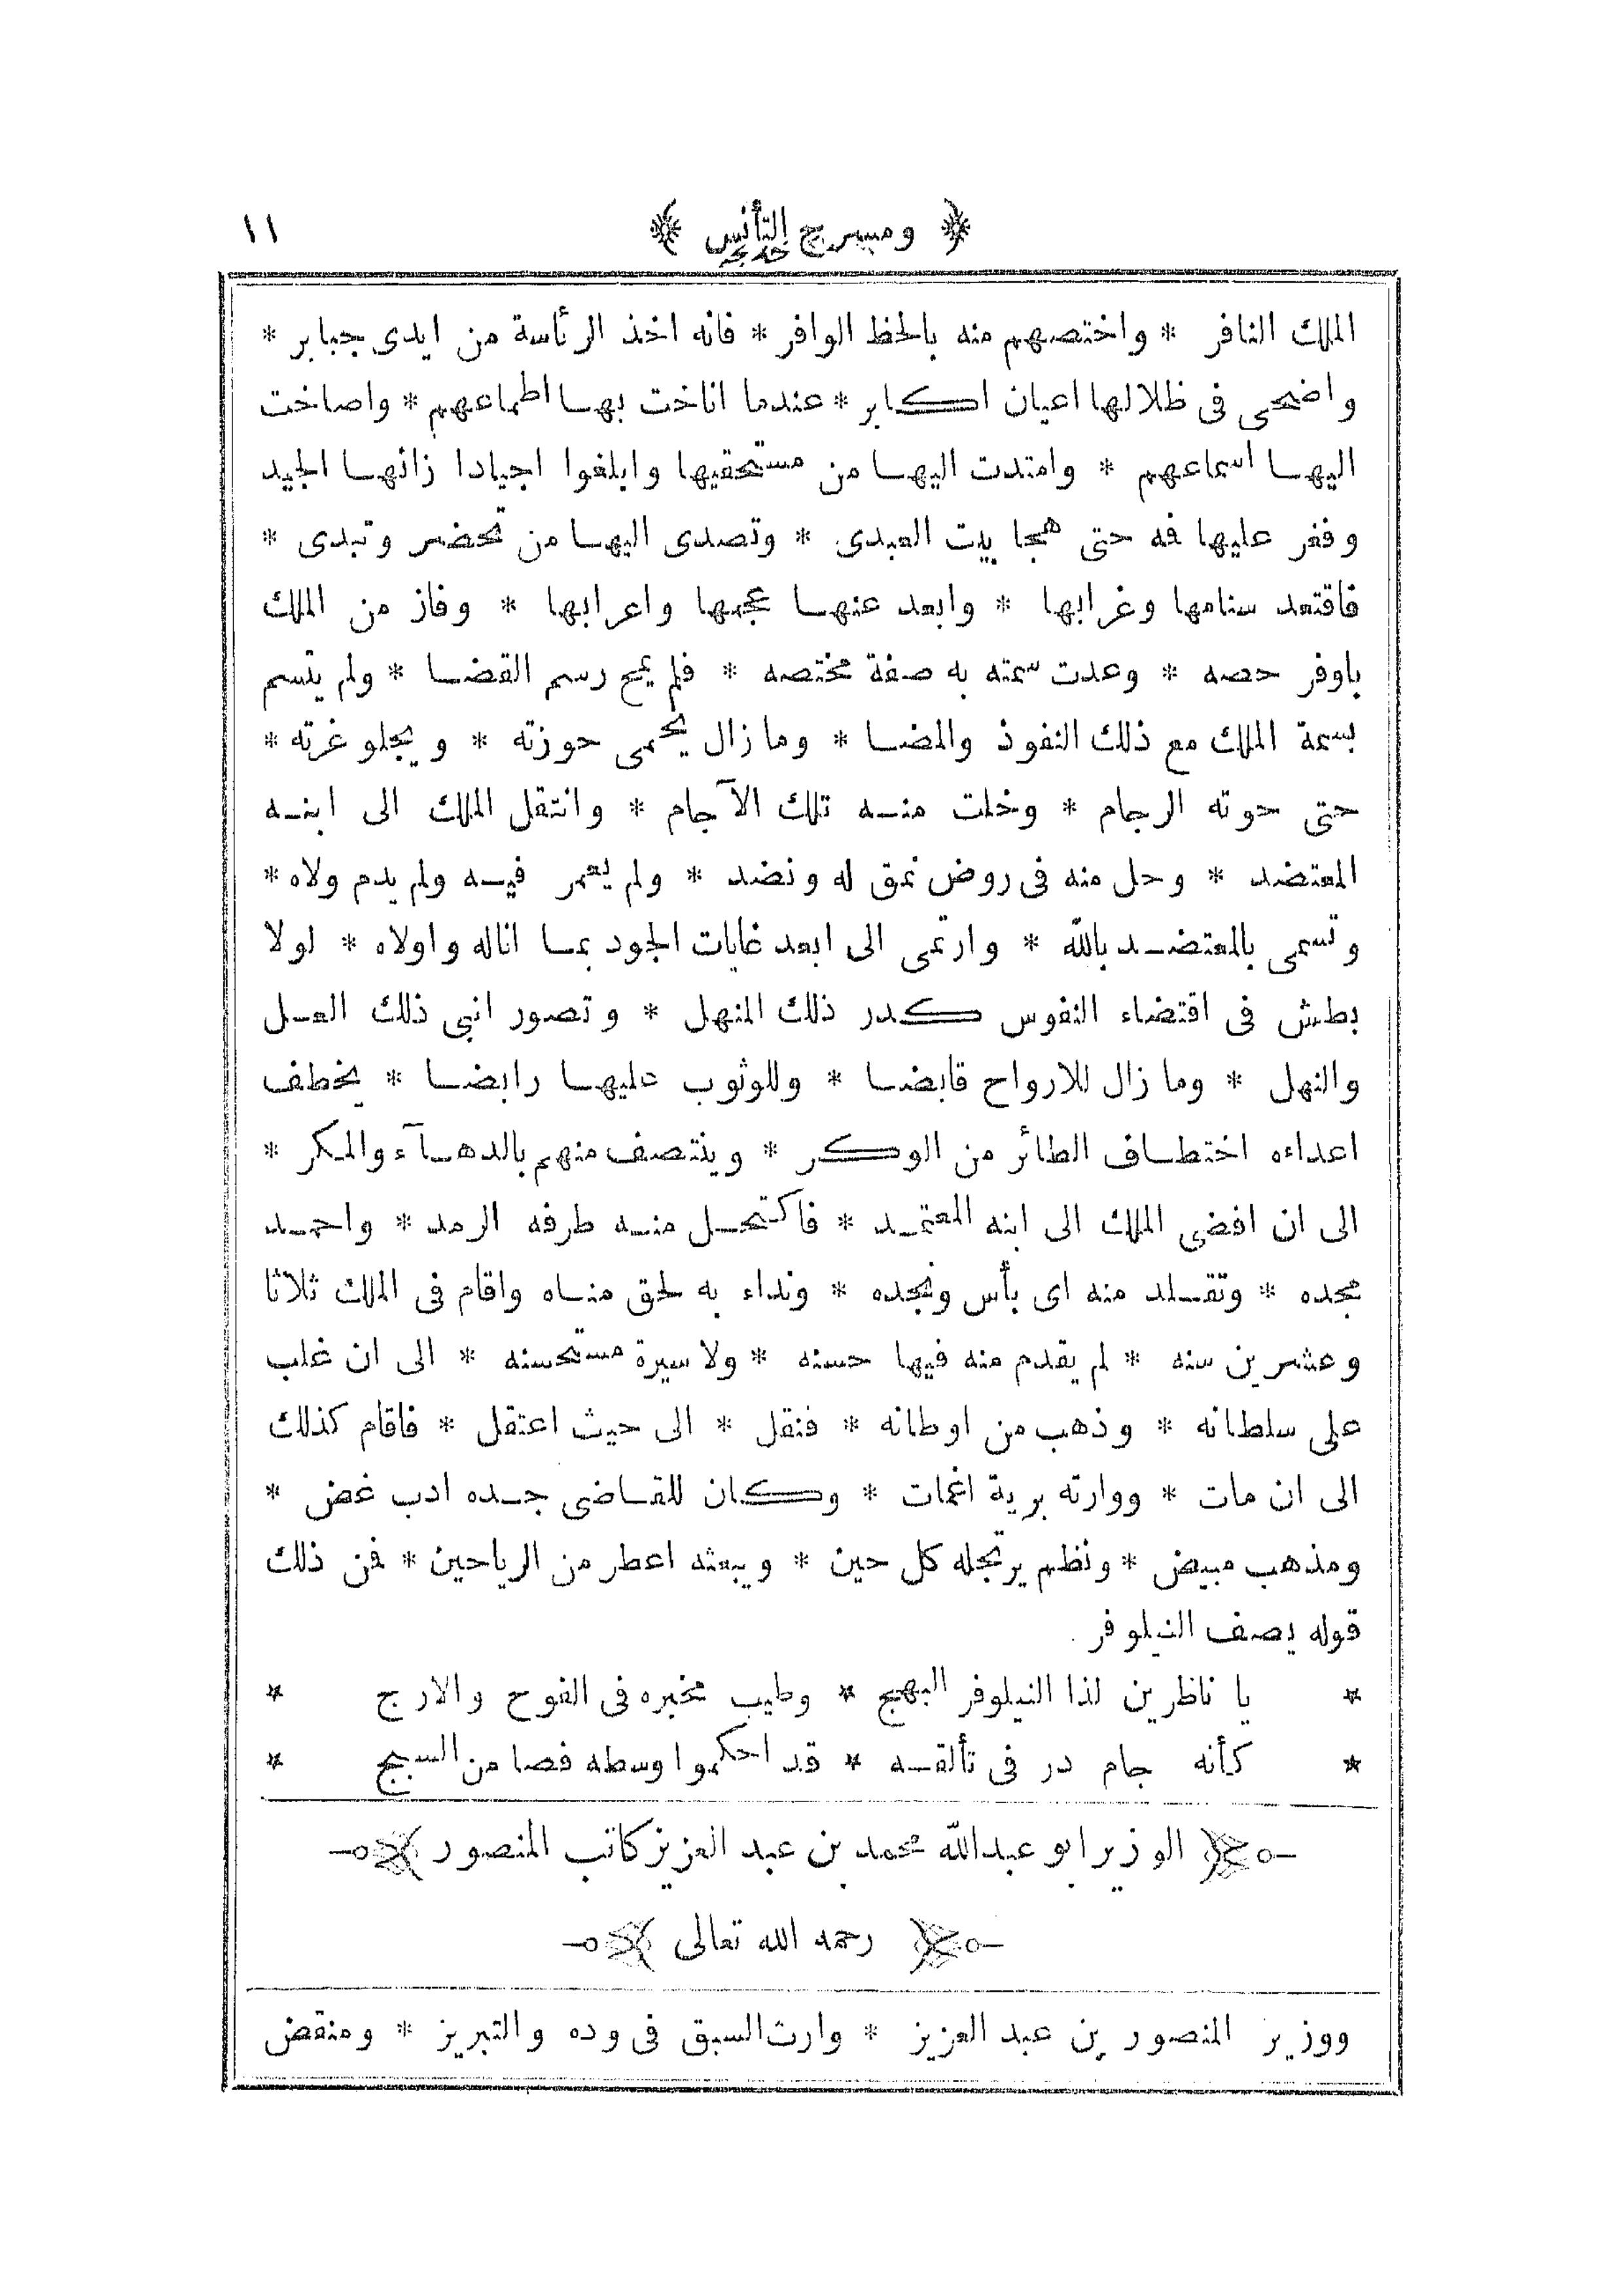 ﴿ ومسرح التأنس ﴾ ١١
الملك النافر * واختصهم منه بالحظ الوافر * فانه اخذ الرئاسة من ايدى جبابر *
واضحى فى ظلالها اعيان اكابر * عندما اناخت بها اطماعهم * واصاخت
اليها اسماعهم * وامتدت اليها من مستحقيها وابلغوا اجيادا زانها الجيد
وفغر عليها فه حتى هجا بيت العبدى * وتصدى اليها من تحضر وتبدى *
فاقتعد سنامها وغرابها * وابعد عنها عجمها واعرابها * وفاز من الملك
باوفر حصه * وعدت سمته به صفة مختصه * فلم يمح رسم القضا * ولم يتسم
بسمة الملك مع ذلك النفوذ والمضا * وما زال يحمى حوزته * ويجلو غرته *
حتى حوته الرجام * وخلت منه تلك الآجام * وانتقل الملك الى ابنه
المعتضد * وحل منه فى روض نمق له ونضد * ولم يعمر فيه ولم يدم ولاه *
وتسمى بالمعتضد بالله * وارتمى الى ابعد غايات الجود بما اناله واولاه * لولا
بطش فى اقتضاء النفوس كدر ذلك المنهل * وتصور انبى ذلك العل
والنهل * وما زال للارواح قابضا * وللوثوب عليها رابضا * يخطف
اعداءه اختطاف الطائر من الوكر * وينتصف منهم بالدهآء والمكر *
الى ان افضى الملك الى ابنه المعتمد * فاكتحل منه طرفه الرمد * واحمد
مجده * وتقلد منه اى بأس ونجده * ونداء به لحق مناه واقام فى الملك ثلاثا
وعشرين سنه * لم يقدم منه فيها حسنه * ولا سيرة مستحسنه * الى ان غلب
على سلطانه * وذهب من اوطانه * فنقل * الى حيث اعتقل * فاقام كذلك
الى ان مات * ووارته برية اغمات * وكان للقاضى جده ادب غض *
ومذهب مبيض * ونظم يرتجله كل حين * ويبعثه اعطر من الرياحين * فن ذلك
قوله يصف النيلوفر
* يا ناظرين لذا النيلوفر البهج * وطيب مخبره فى الفوح والارج *
* كأنه جام در فى تألقه * قد احكموا وسطه فصا من السبج *
الوزير ابو عبدالله محمد بن عبد العزيز كاتب المنصور
رحمه الله تعالى
ووزير المنصور بن عبد العزيز * وارث السبق فى وده والتبريز * ومنقض